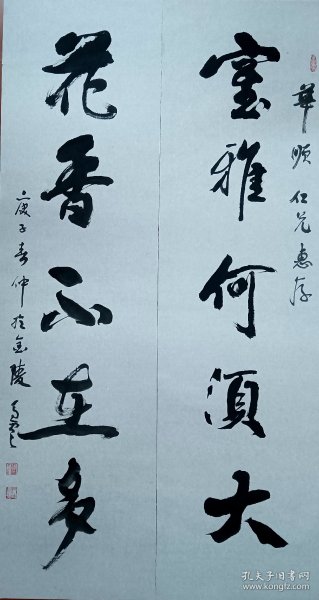 華順仁兄惠存
室雅何須大
花香不在多
庚子春仲於金陵
孔夫子旧书网